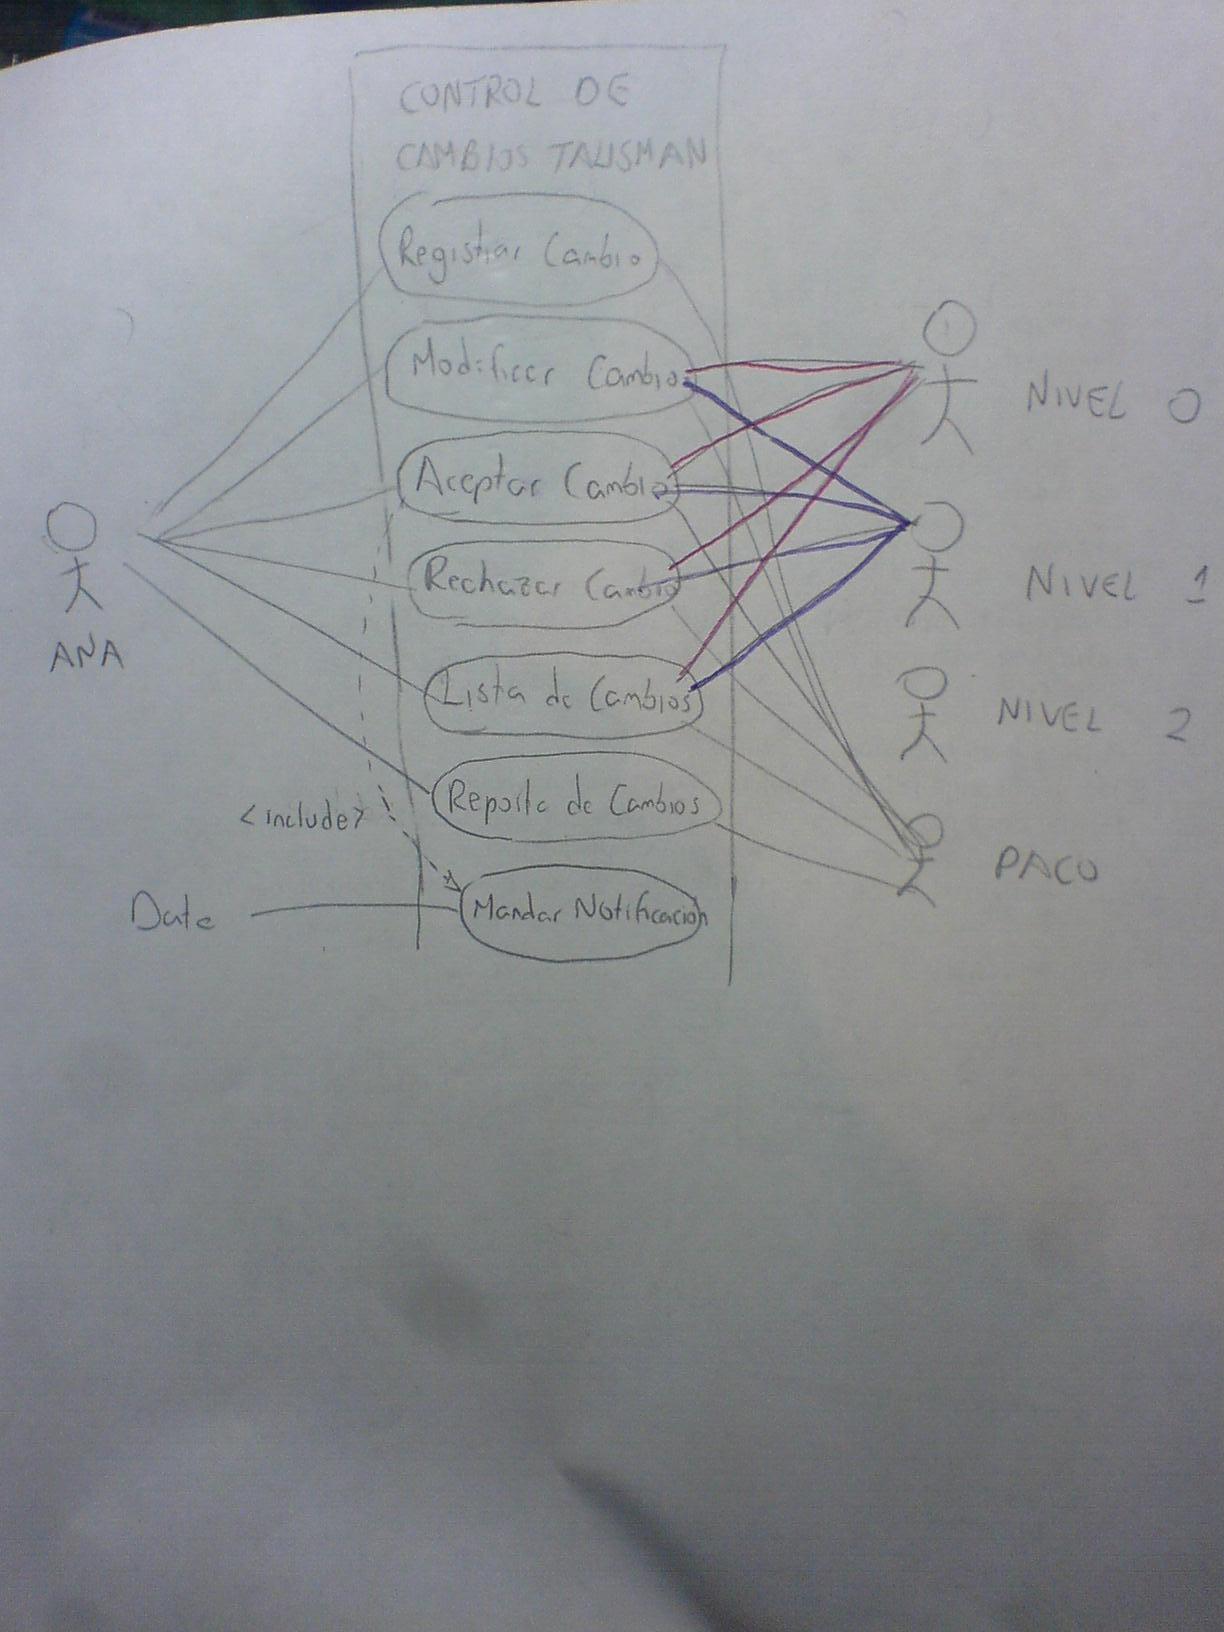 CONTROL DE
CAMBIOS TALISMAN
Registrar Cambio
Modificar Cambio
Aceptar Cambio
Rechazar Cambio
Lista de Cambios
Reporte de Cambios
<include>
Mandar Notificación
Date
ANA
NIVEL 0
NIVEL 1
NIVEL 2
PACO